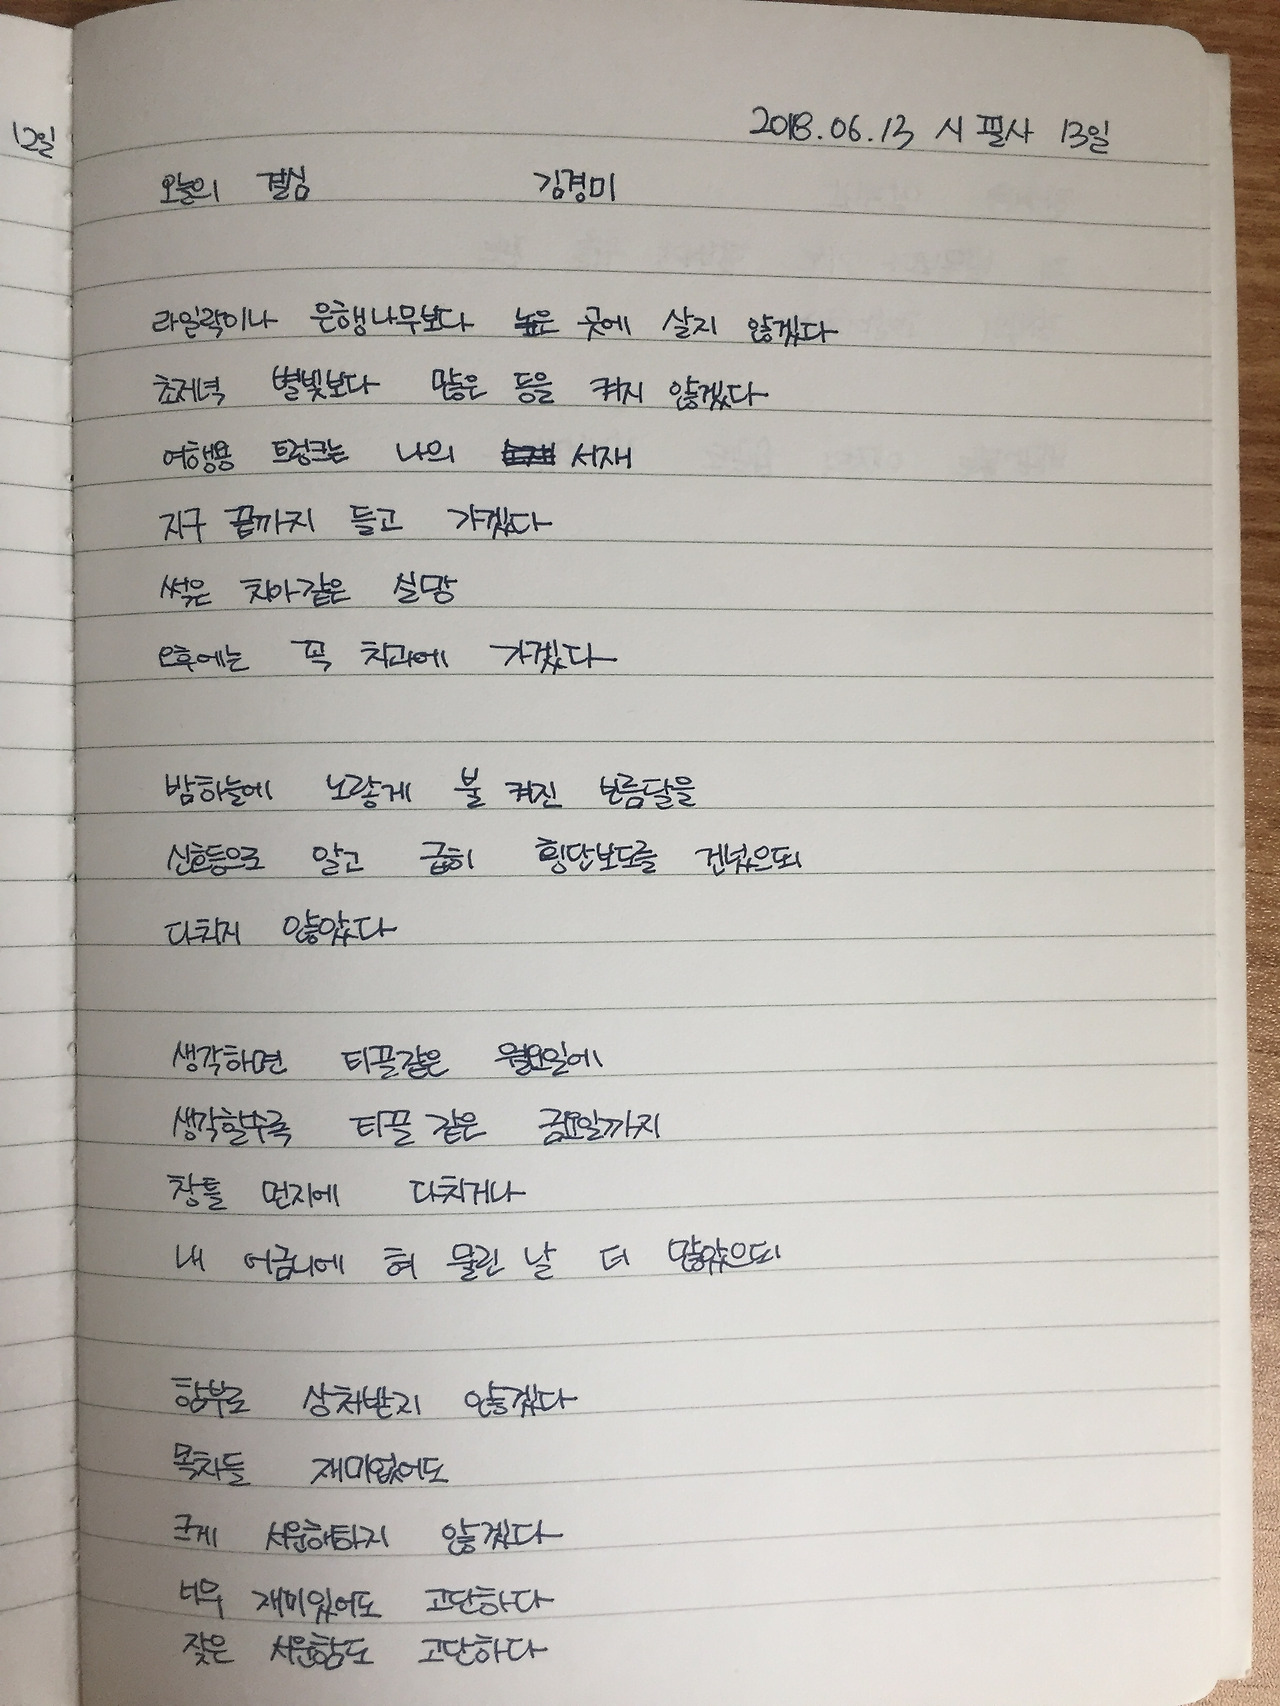 12일
2018.06.13 시 필사 13일
오늘의 결심 김경미
라일락이나 은행나무보다 높은 곳에 살지 않겠다
초저녁 별빛보다 많은 등을 켜지 않겠다
여행용 트렁크는 나의 서재
지구 끝까지 들고 가겠다
썩은 치아같은 실망
오후에는 꼭 치과에 가겠다
밤하늘에 노랗게 불 켜진 보름달을
신호등으로 알고 급히 횡단보도를 건넜으되
다치지 않았다
생각하면 티끌같은 월요일에
생각할수록 티끌 같은 금요일까지
창틀 먼지에 다치거나
내 어금니에 혀 물린 날 더 많았으되
함부로 상처받지 않겠다
목차들 재미없어도
크게 서운해하지 않겠다
너무 재미있어도 고단하다
잦은 서운함도 고단하다